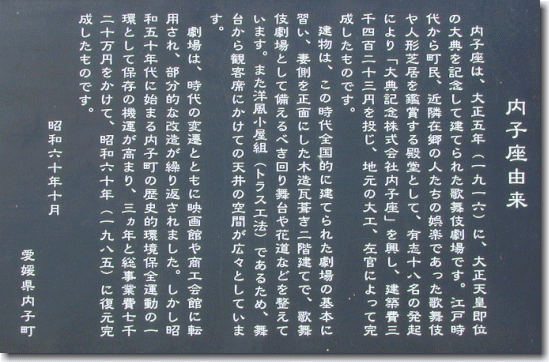 内子座由来
内子座は、大正五年（一九一六）に、大正天皇即位
の大典を記念して建てられた歌舞伎劇場です。江戸時
代から町民、近隣在郷の人たちの娯楽であった歌舞伎
や人形芝居を鑑賞する殿堂として、有志十八名の発起
により「大典記念株式会社内子座」を興し、建築費三
千四百二十三円を投じ、地元の大工、左官によって完
成したものです。
建物は、この時代全国的に建てられた劇場の基本に
習い、妻側を正面にした木造瓦葺き二階建てで、歌舞
伎劇場として備えるべき回り舞台や花道などを整えて
います。また洋風小屋組（トラス工法）であるため、舞
台から観客席にかけての天井の空間が広々としていま
す。
劇場は、時代の変遷とともに映画館や商工会館に転
用され、部分的な改造が繰り返されました。しかし昭
和五十年代に始まる内子町の歴史的環境保全運動の一
環として保存の機運が高まり、三ヵ年と総事業費七千
二十万円をかけて、昭和六十年（一九八五）に復元完
成したものです。
昭和六十年十月
愛媛県内子町